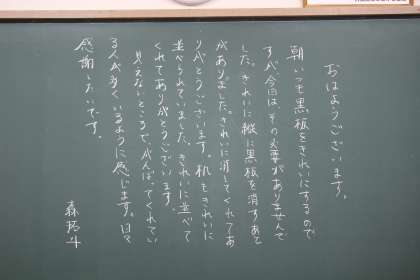 おはようございます。
朝いつも黒板をきれいにするので
すが今回はその必要がありませんで
した。きれいに縦に黒板を消すあと
がありました。きれいに消してくれてあ
りがとうございます。机もきれいに
並べられていました。きれいに並べて
くれてありがとうございます。
見えないところで、がんばってくれてい
る人が多くいるように感じます。日々
感謝したいです。
森 拓斗